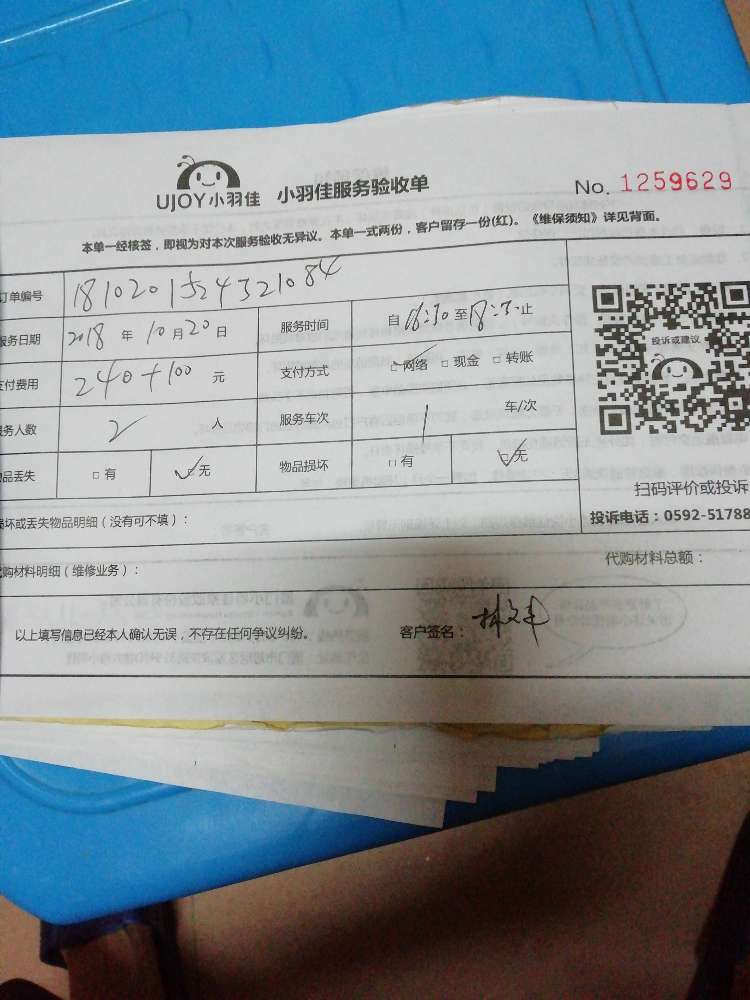 UJOY小羽佳 小羽佳服务验收单 No. 1259629
本单一经核签，即视为对本次服务验收无异议。本单一式两份，客户留存一份(红)。《维保须知》详见背面。
订单编号
服务日期 2018 年 10 月 20 日 服务时间 自 至 止
支付费用 240+100 元 支付方式 网络 □ 现金 □ 转账
服务人数 2 人 服务车次 1 车/次
物品丢失 □ 有 ✓ 无 物品损坏 □ 有 ✓ 无
投诉或建议
扫码评价或投诉
投诉电话：0592-51788
损坏或丢失物品明细（没有可不填）：
代购材料明细（维修业务）： 代购材料总额：
以上填写信息已经本人确认无误，不存在任何争议纠纷。 客户签名：